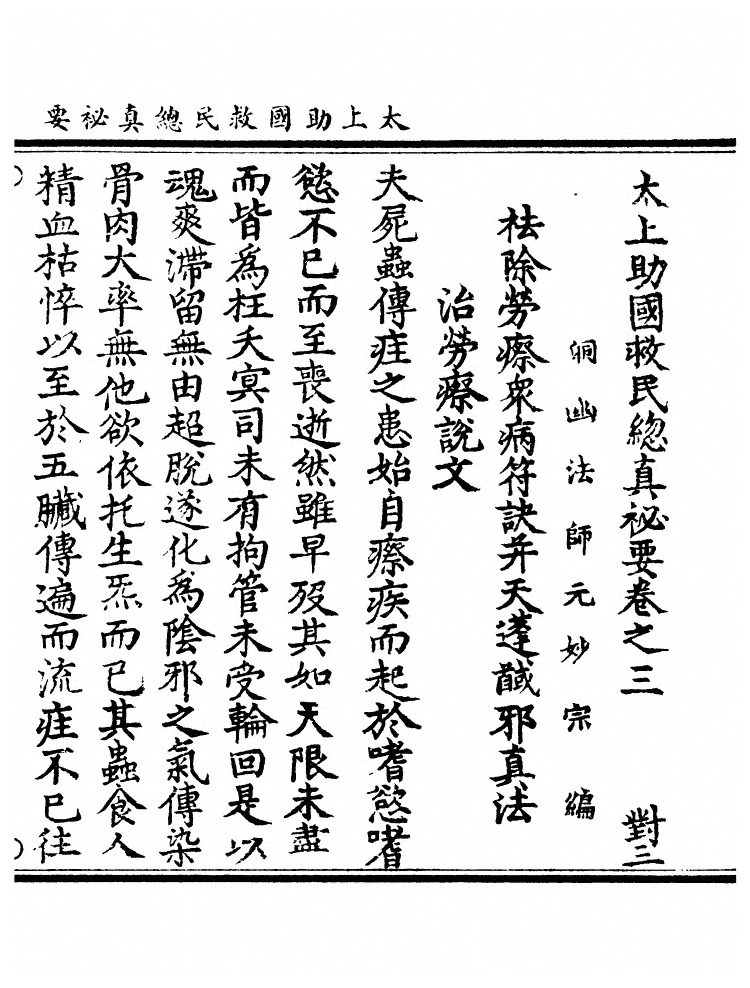 太上助國救民總真祕要
太上助國救民總真祕要卷之三 對三
洞幽法師元妙宗編
祛除勞瘵眾病符訣并天蓬馘邪真法
治勞瘵說文
夫屍蟲傳疰之患始自瘵疾而起於嗜慾嗜
慾不已而至喪逝然雖早歿其如天限未盡
而皆為枉夭冥司未有拘管未受輪回是以
魂爽滯留無由超脫遂化為陰邪之氣傳染
骨肉大率無他欲依托生炁而已其蟲食人
精血枯悴以至於五臟傳遍而流疰不已往